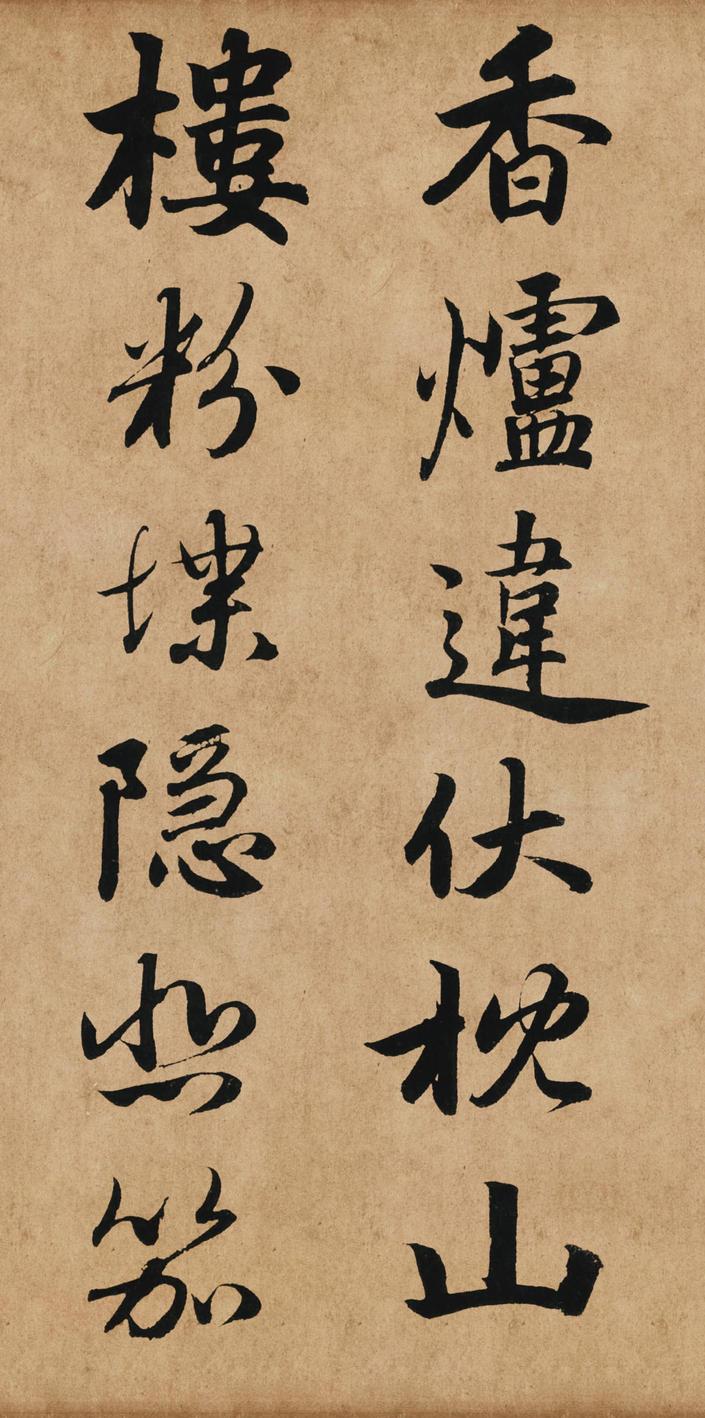 香爐違伏枕山
樓粉堞隱悲笳